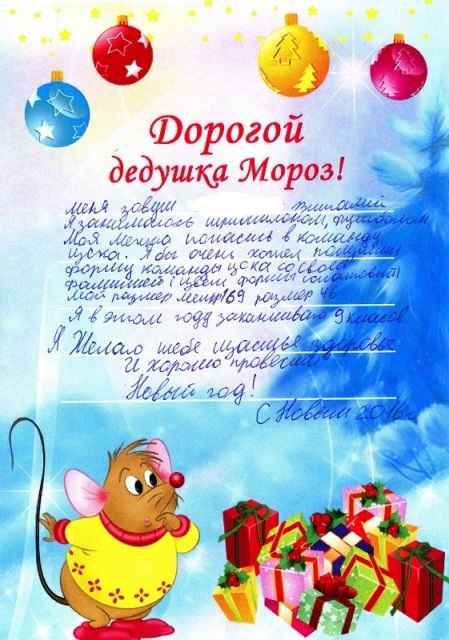 Дорогой
дедушка Мороз!
меня зовут Виталий
Я занимаюсь футболом,
Моя мечта попасть в команду
цска. Я бы очень хотел получить
форму команды цска со своей
фамилией (цвет формы
мой размер 169 размер 46
Я в этом году заканчиваю 9 класов
Я Желаю тебе щастья здоровье
И хорошо провести
Новый год!
С Новым 2016г